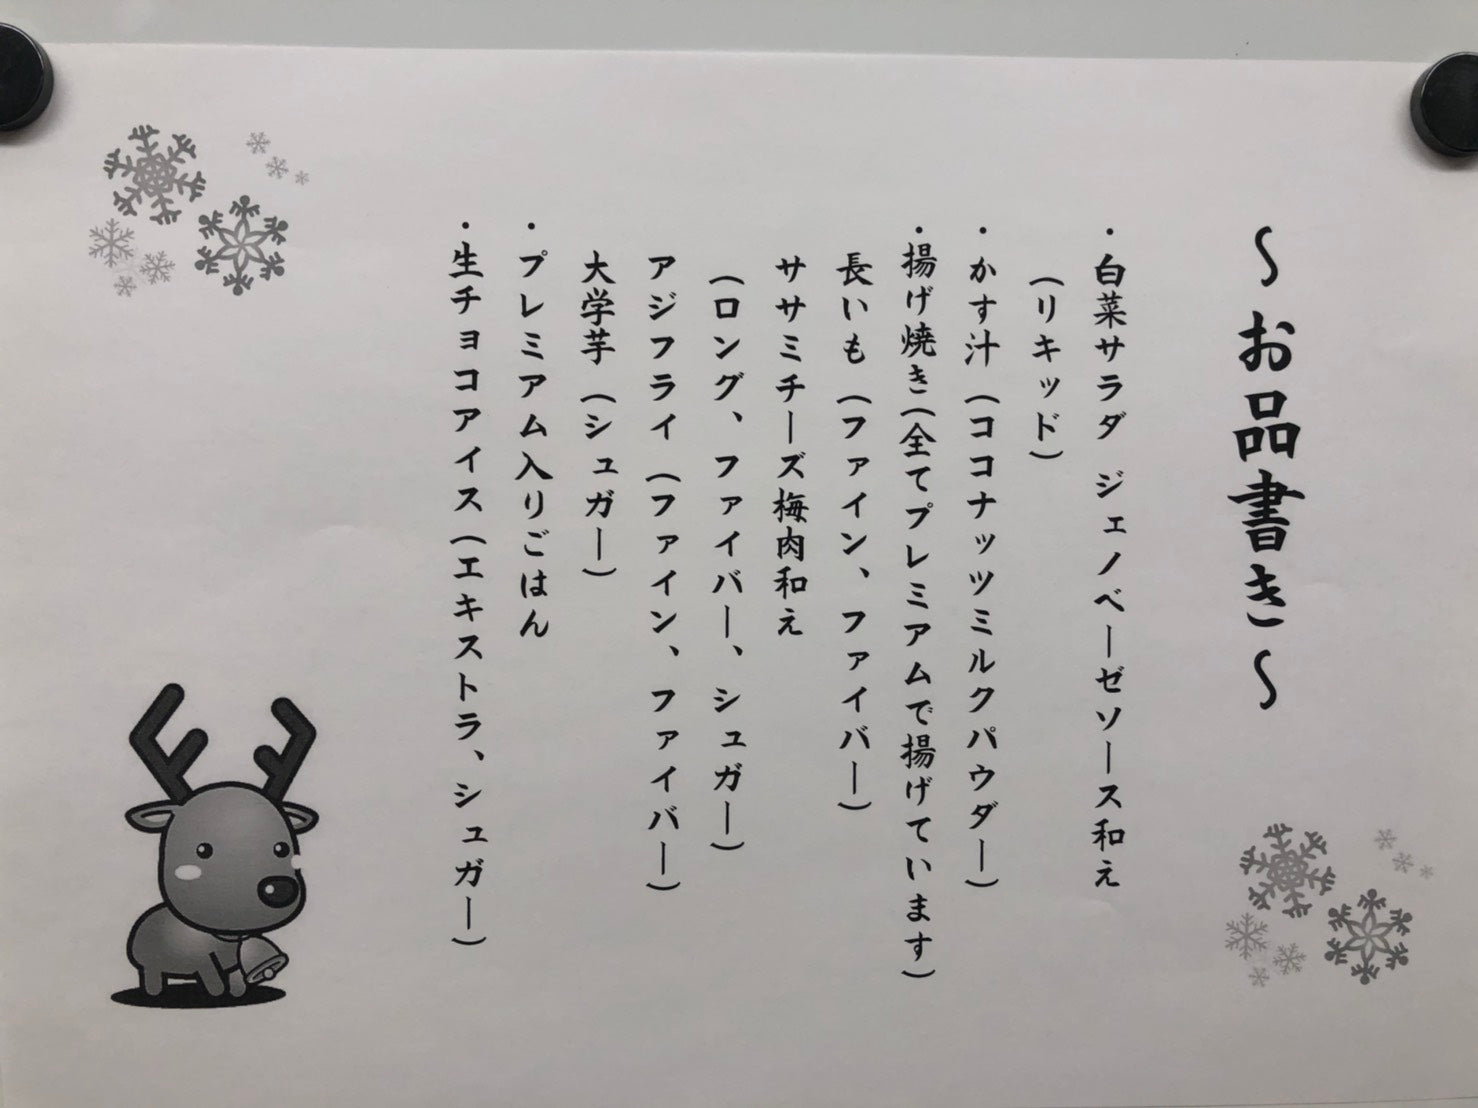 ～お品書き～
・白菜サラダ ジェノベーゼソース和え
（リキッド）
・かす汁（ココナッツミルクパウダー）
・揚げ焼き（全てプレミアムで揚げています）
長いも（ファイン、ファイバー）
ササミチーズ梅肉和え
（ロング、ファイバー、シュガー）
アジフライ（ファイン、ファイバー）
大学芋（シュガー）
・プレミアム入りごはん
・生チョコアイス（エキストラ、シュガー）